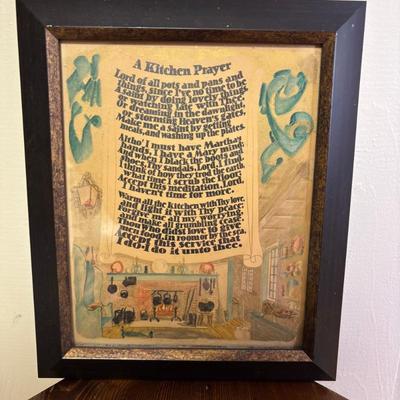 A Kitchen Prayer
Lord of all pots and pans and
things, since I've no time to be
A saint by doing lovely things,
or watching late with Thee,
Or dreaming in the dawnlight,
or storming Heaven's gates,
Make me a saint by getting
meals, and washing up the plates.
Altho' I must have Martha's
hands, I have a Mary mind;
And when I black the boots and
shoes, Thy sandals, Lord, I find.
I think of how they trod the earth,
what time I scrub the floor;
Accept this meditation, Lord,
I haven't time for more.
Warm all the kitchen with Thy love,
and light it with Thy peace;
Forgive me all my worrying,
and make all grumbling cease.
Thou who didst love to give
men food, in room or by the sea,
Accept this service that
I do-I do it unto thee.